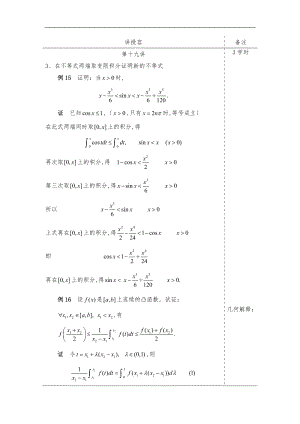 讲授容
备注
第十九讲
3 学时
3．在不等式两端取变限积分证明新的不等式．
例 15 证明：当 x>0 时,
x - x³/6 < sin x < x - x³/6 + x⁵/120 .
证 已知 cos x ≤ 1，（x>0，只有 x = 2nπ 时，等号成立）
在此式两端同时取[0, x]上的积分,得
∫₀ˣ cos t dt ≤ ∫₀ˣ dt, sin x < x (x>0)
再次取[0, x]上的积分,得 1-cos x < x²/2 x>0
第三次取[0, x]上的积分,得 x - x³/6 < sin x x>0
所以 x - x³/6 < sin x x>0
上式再在[0, x]上的积分,得 x²/2 - x⁴/24 < 1-cos x x>0
即 cos x < 1 - x²/2 + x⁴/24 x>0
再在[0, x]上的积分,得 sin x < x - x³/6 + x⁵/120 x>0.
例 16 设 f(x) 是[a,b]上连续的凸函数，试证：
几何解释：
∀x₁, x₂ ∈ [a,b], x₁ < x₂ 有
f((x₁+x₂)/2) ≤ 1/(x₂-x₁) ∫ f(t)dt ≤ (f(x₁)+f(x₂))/2.
证 令 t = x₁ + λ(x₂ - x₁), λ∈(0,1)，则
1/(x₂-x₁) ∫ f(t)dt = ∫₀¹ f(x₁ + λ(x₂-x₁))dλ (1)